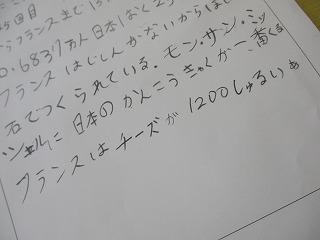 5回目
らフランスまで1
0.6837万人日本はく2
フランスはじしんがないからほし
石でつくられている。モン・サン・ミッ
シェルに日本のかんこうきゃくが一番くる
フランスはチーズが1200しゅるいあ